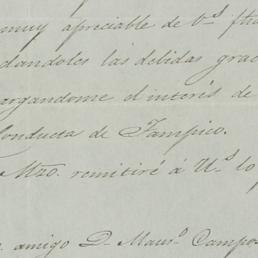 muy apreciable de Vˢ fha
dandoles las debidas grac
argandome el interés de
Conducta de Tampico.
Mzo. remitiré á Uˢ lo
amigo D. Maurᵒ Campos